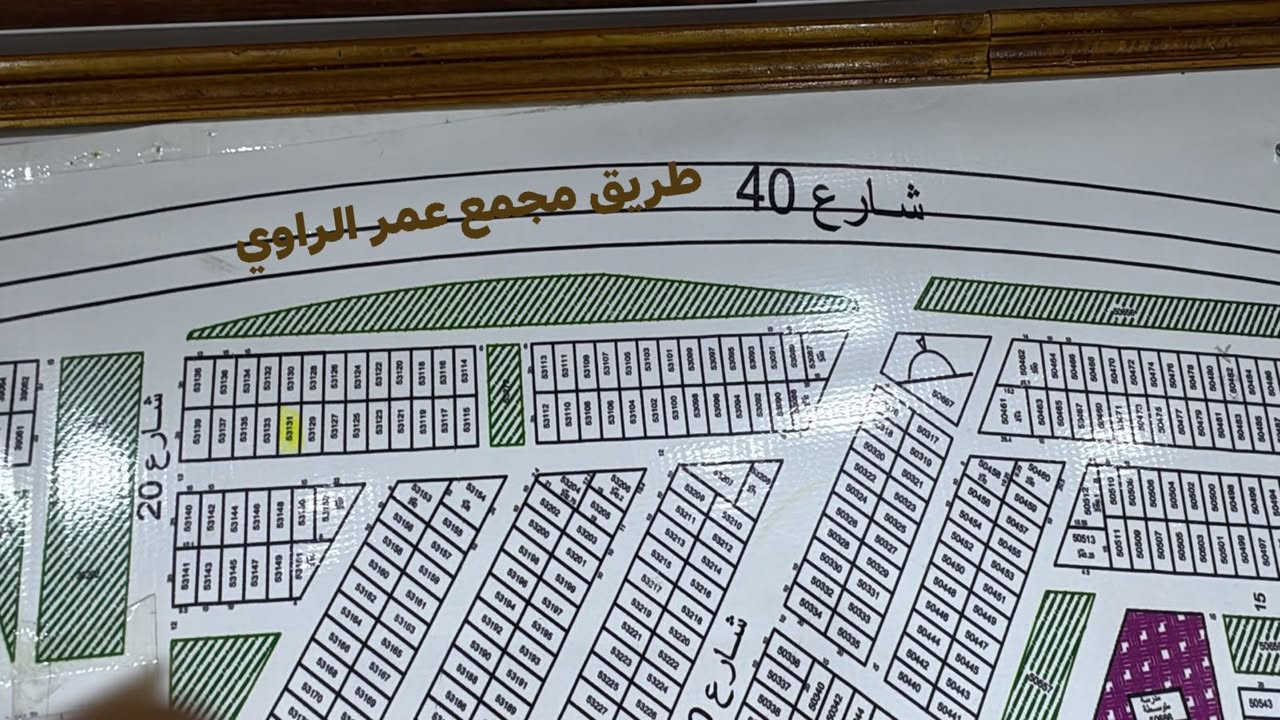 شارع 40
طريق مجمع عمر الراوي
شارع 20
53136 53134 53132 53130 53128 53126 53124 53122 53120 53118 53116 53114
53139 53137 53135 53133 53131 53129 53127 53125 53123 53121 53119 53117 53115
53113 53111 53109 53107 53105 53103 53101 53099 53097 53095 53093 53091
53112 53110 53108 53106 53104 53102 53100 53098 53096 53094 53092 53090
53140 53142 53144 53146 53148 53150
53141 53143 53145 53147 53149 53151
53153 53154
53156 53155
53158 53157
53160 53159
53162 53161
53164 53163
53166 53165
53168 53167
53170 53169
53204 53206
53202 53205
53200 53203
53198 53201
53196 53199
53194 53197
53192 53195
53190 53193
53188 53191
53189
53209 53210
53211 53212
53213 53214
53215 53216
53217 53218
53219 53220
53221 53222
53223 53224
53225 53226
53227
50667
50318 50317
50320 50319
50322 50321
50324 50323
50326 50325
50328 50327
50330 50329
50332 50331
50334 50333
50335
50336
50337 50340
50338 50342
50458 50460
50456 50459
50454 50457
50452 50455
50450 50453
50448 50451
50446 50449
50444 50447
50442 50445
50440 50443
50462 50464 50466 50468 50470 50472 50474 50476 50478 50480 50482
50461 50463 50465 50467 50469 50471 50473 50475 50477 50479 50481 50483 50485
50512 50510 50508 50506 50504 50502 50500 50498 50496 50494
50513 50511 50509 50507 50505 50503 50501 50499 50497
50657
15
50543
شارع